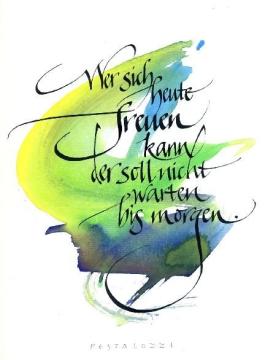 Wer sich
heute
freuen
kann
der soll nicht
warten
bis morgen.
PESTALOZZI